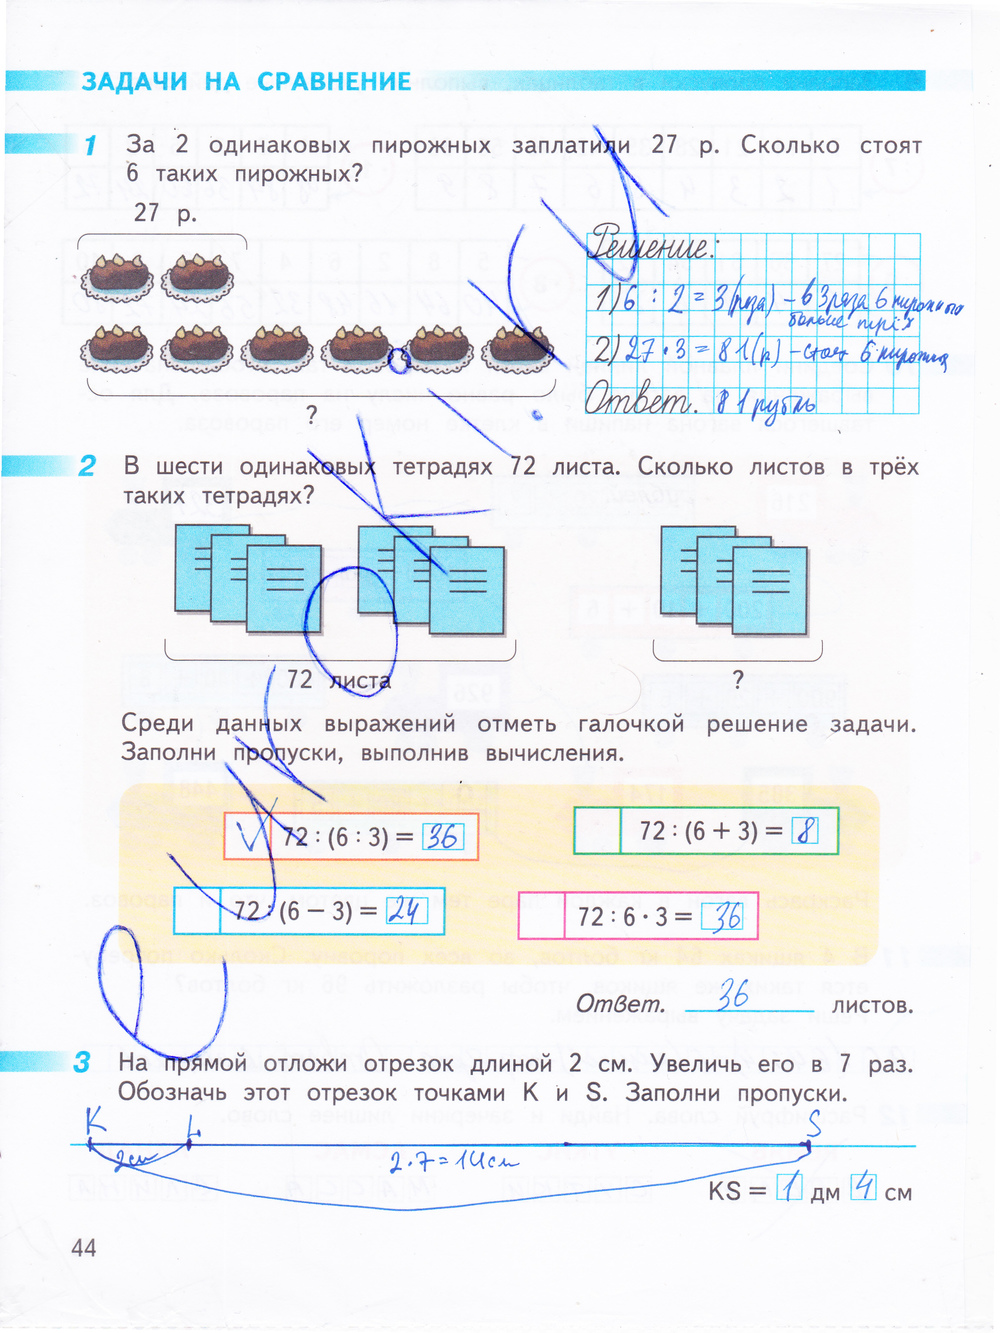 ЗАДАЧИ НА СРАВНЕНИЕ
1 За 2 одинаковых пирожных заплатили 27 р. Сколько стоят
6 таких пирожных?
27 р.
?
Решение:
1) 6 : 2 = 3 (раза) – в 3 раза 6 пирожных
больше трёх
2) 27 · 3 = 81 (р) – стоят 6 пирожн
Ответ. 81 рубль
2 В шести одинаковых тетрадях 72 листа. Сколько листов в трёх
таких тетрадях?
72 листа
?
Среди данных выражений отметь галочкой решение задачи.
Заполни пропуски, выполнив вычисления.
72 : (6 : 3) = 36
72 : (6 + 3) = 8
72 : (6 − 3) = 24
72 : 6 · 3 = 36
Ответ. 36 листов.
3 На прямой отложи отрезок длиной 2 см. Увеличь его в 7 раз.
Обозначь этот отрезок точками K и S. Заполни пропуски.
K L S
2см 2·7=14см
KS = 1 дм 4 см
44